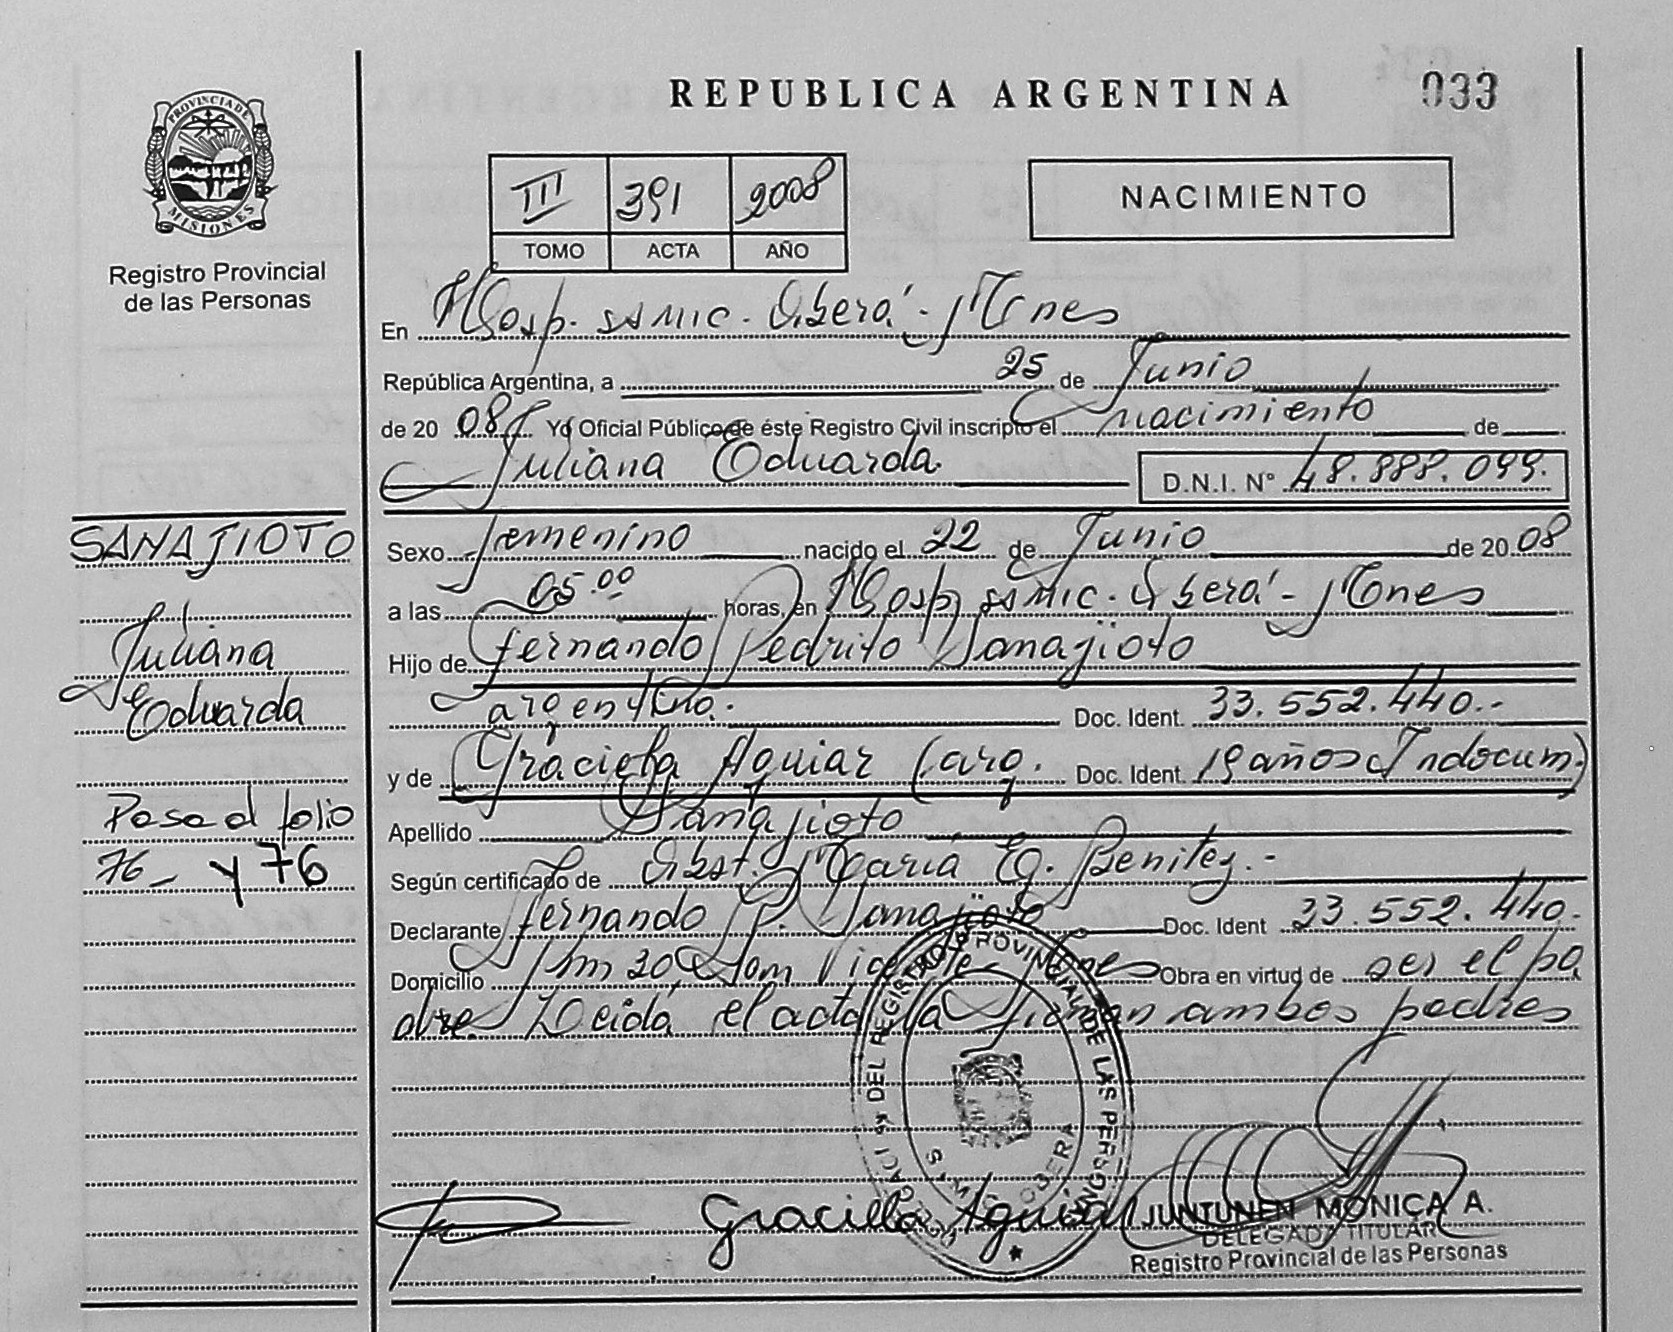 REPUBLICA ARGENTINA
033
PROVINCIA DE MISIONES
Registro Provincial
de las Personas
III 391 2008
TOMO ACTA AÑO
NACIMIENTO
En Hosp. SSMIC. Oberá - Mnes
República Argentina, a 25 de Junio
de 20 08 Yo Oficial Público de éste Registro Civil inscripto el nacimiento de
Juliana Eduarda D.N.I. N° 48.888.099.
Sexo femenino nacido el 22 de Junio de 20 08
a las 05.00 horas, en Hosp SSMIC. Oberá - Mnes
Hijo de Fernando Pedrito Sanajioto
argentino. Doc. Ident. 33.552.440.-
y de Graciela Aguiar (arg. Doc. Ident. 19 años Indocum)
Apellido Sanajioto
Según certificado de Obst. María Eg. Benitez.-
Declarante Fernando P. Sanajioto Doc. Ident 33.552.440.
Domicilio Km 30 Dom Vicente - Mnes Obra en virtud de ser el pa
dre Leida el acta la firman ambos padres
SANAJIOTO
Juliana
Eduarda
Pasa al folio
76 - y 76
DEL REGISTRO PROVINCIAL DE LAS PERSONAS
OBERA
Graciela Aguiar
JUNTUNEN MONICA A.
DELEGADA TITULAR
Registro Provincial de las Personas